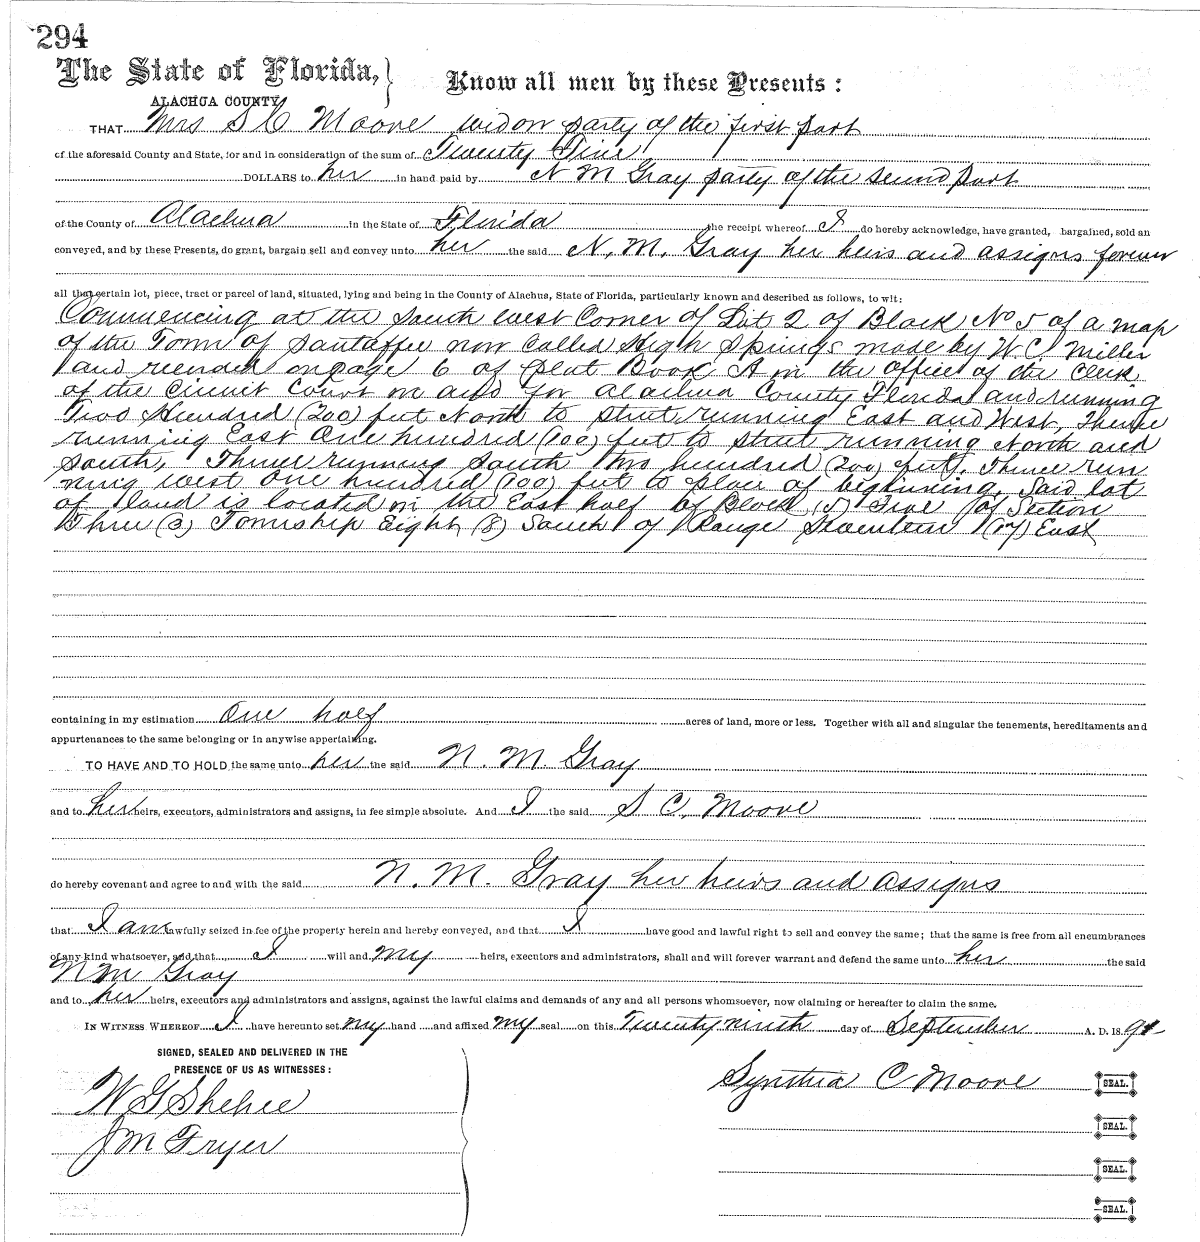 294
The State of Florida, } Know all men by these Presents :
ALACHUA COUNTY
THAT Mrs S C Moore widow party of the first part
of the aforesaid County and State, for and in consideration of the sum of Twenty Five
DOLLARS to her in hand paid by N M Gray party of the second part
of the County of Alachua in the State of Florida the receipt whereof I do hereby acknowledge, have granted, bargained, sold an
conveyed, and by these Presents, do grant, bargain sell and convey unto her the said N. M. Gray her heirs and assigns forever
all that certain lot, piece, tract or parcel of land, situated, lying and being in the County of Alachua, State of Florida, particularly known and described as follows, to wit:
Commencing at the South West Corner of Lot 2 of Block No 5 of a map
of the Town of Santaffee now called High Springs made by W. C. Miller
and recorded on page 6 of Plat Book A in the office of the Clerk
of the Circuit Court in and for Alachua County Florida and running
Two Hundred (200) feet North to street running East and West, Thence
running East One hundred (100) feet to street running North and
South, Thence running South Two hundred (200) feet, Thence run
ning west one hundred (100) feet to place of beginning, Said lot
of land is located in the East half of Block (5) Five of Section
Three (3) Township Eight (8) South of Range Seventeen (17) East
containing in my estimation One half acres of land, more or less. Together with all and singular the tenements, hereditaments and
appurtenances to the same belonging or in anywise appertaining.
TO HAVE AND TO HOLD the same unto her the said N. M. Gray
and to her heirs, executors, administrators and assigns, in fee simple absolute. And I the said S C. Moore
do hereby covenant and agree to and with the said N. M. Gray her heirs and assigns
that I am lawfully seized in fee of the property herein and hereby conveyed, and that I have good and lawful right to sell and convey the same; that the same is free from all encumbrances
of any kind whatsoever, and that I will and my heirs, executors and administrators, shall and will forever warrant and defend the same unto her the said
N M Gray
and to her heirs, executors and administrators and assigns, against the lawful claims and demands of any and all persons whomsoever, now claiming or hereafter to claim the same.
IN WITNESS WHEREOF I have hereunto set my hand and affixed my seal on this Twenty ninth day of September A. D. 18
SIGNED, SEALED AND DELIVERED IN THE
PRESENCE OF US AS WITNESSES :
W G Shehee
J M Fryer
Synthia C Moore SEAL.
SEAL.
SEAL.
SEAL.